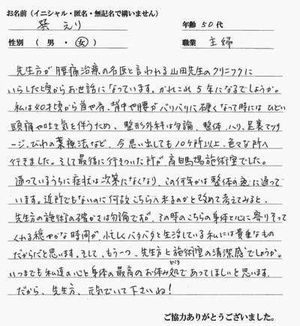 お名前(イニシャル・匿名・無記名で構いません)
葵 えり
年齢 50代
性別 ( 男 ・ 女 )
職業 主婦
先生方が腰痛治療の名医と言われる山田先生のクリニックに
いらした時からお世話になっています。かれこれ5年になるでしょうか。
私は40才頃から首や肩、背中や腰がバリバリに硬くなって時には ひどい
頭痛や吐き気を伴うため、整形外科は勿論、整体、ハリ、足裏マッサ
ージ、びわの葉療法など、今思い出しても10ヶ所以上、色々な所へ
行きました。そして最後に行きついた所が高田馬場施術院でした。
通っているうちに症状は次第になくなり、この何年かは整体のみに通って
います。近所でもないのに何故こちらへ来るのかと改めて考えてみると、
先生方の施術の確かさは勿論ですが、その時のこちらの身体と心に寄りそって
くれる穏やかな時間が、忙しくバタバタと生活している私には貴重なもの
だからだと思います。そして、もう一つ、先生方と施術院の清潔感でしょうか。
いつまでも私達の心と身体の最高のお休み処であってほしいと思います。
だから、先生方、元気でいて下さいね!
ご協力ありがとうございました。